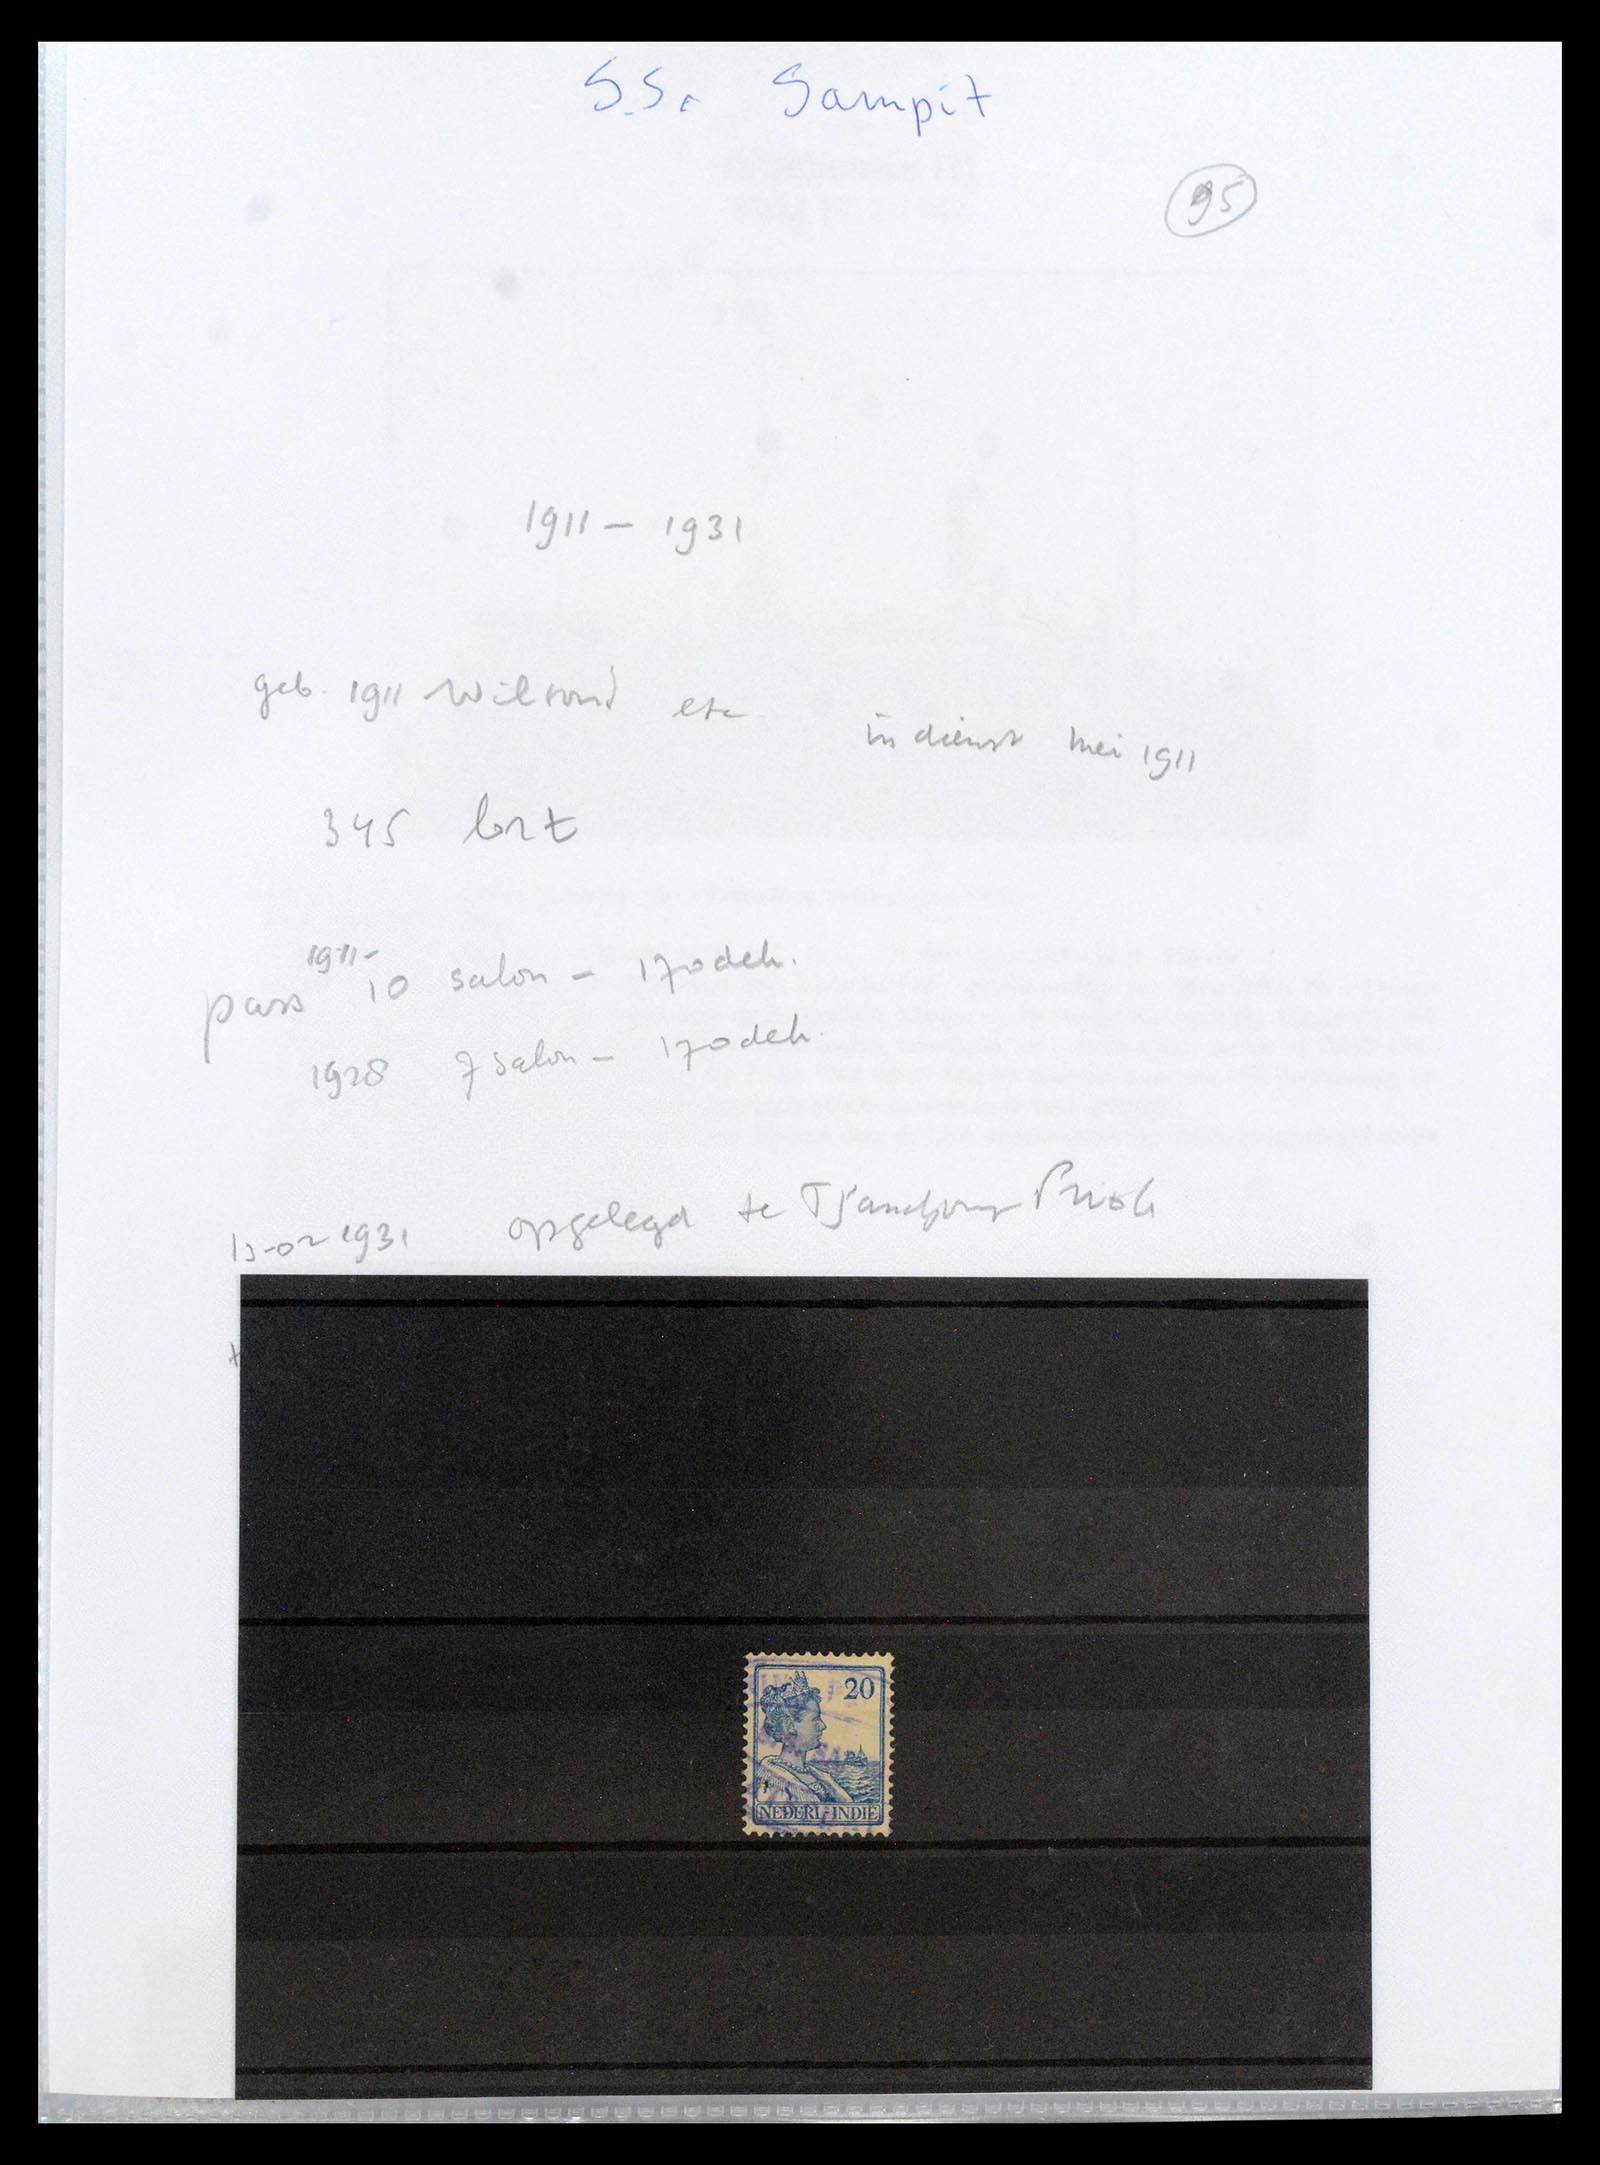 S.S. Sampit
95
1911 – 1931
geb. 1911 etc. in dienst mei 1911
345 brt
1911-
pass 10 salon – 170 dek.
1928 7 salon – 170 dek.
-02 1931 opgelegd te Tjandjong Priok
20
NEDERL-INDIE